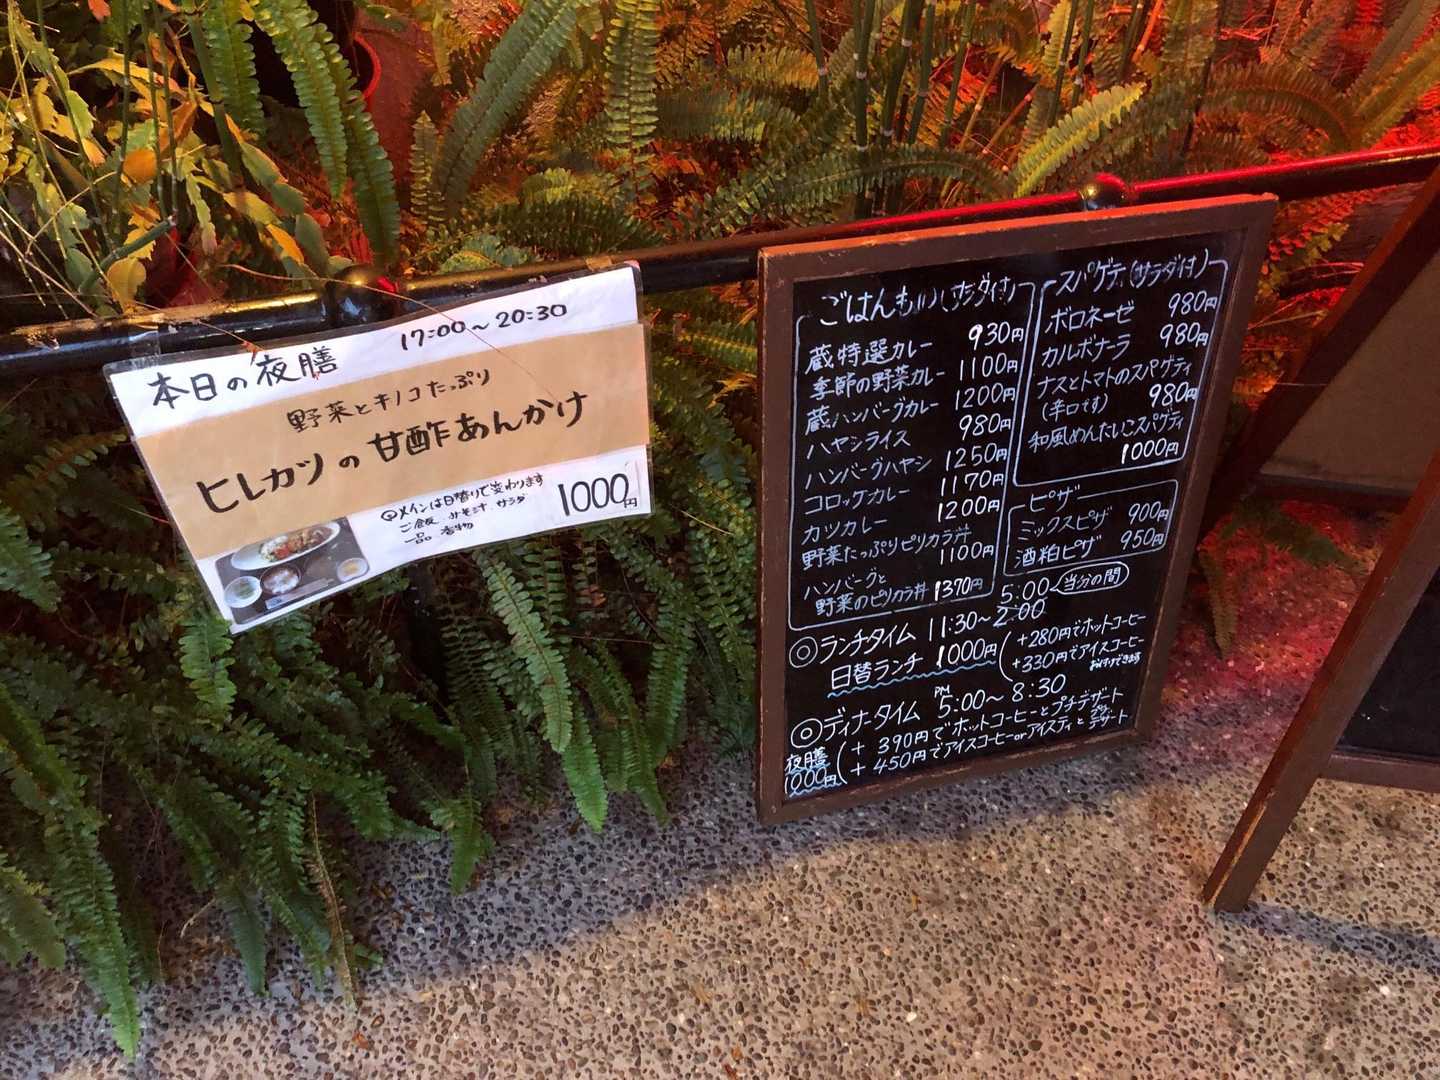 本日の夜膳
17:00～20:30
野菜とキノコたっぷり
ヒレカツの甘酢あんかけ
メインは日替りで変わります
ご飯 みそ汁 サラダ
一品 香物
1000円
ごはんもの(サラダ付)
蔵特選カレー 930円
季節の野菜カレー 1100円
蔵ハンバーグカレー 1200円
ハヤシライス 980円
ハンバーグハヤシ 1250円
コロッケカレー 1170円
カツカレー 1200円
野菜たっぷりピリカラ丼
1100円
ハンバーグと
野菜のピリカラ丼 1370円
スパゲティ(サラダ付)
ボロネーゼ 980円
カルボナーラ 980円
ナスとトマトのスパゲティ
(辛口です) 980円
和風めんたいこスパゲティ
1000円
ピザ
ミックスピザ 900円
酒粕ピザ 950円
5:00 当分の間
◎ランチタイム 11:30～2:00
日替ランチ 1000円
+280円でホットコーヒー
+330円でアイスコーヒー
お付けできます
◎ディナータイム PM 5:00～8:30
夜膳
1000円
+390円でホットコーヒーとプチデザート
+450円でアイスコーヒーorアイスティとプチデザート